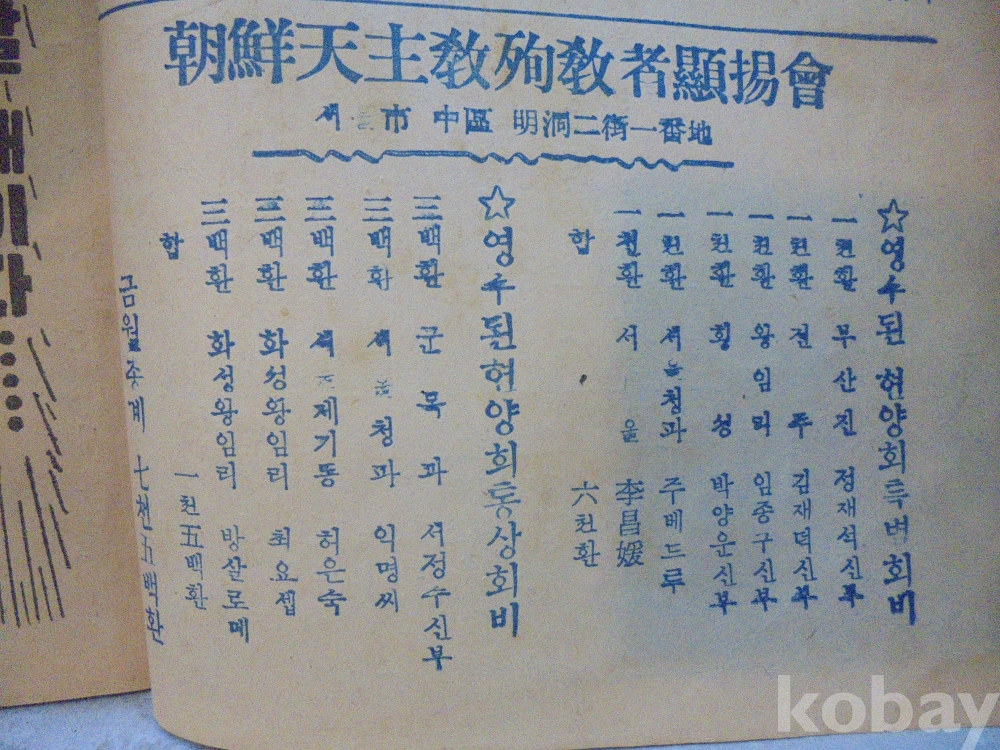 朝鮮天主教殉教者顯揚會
서울市 中區 明洞二街一番地
☆영수된 현양회특별회비
一천환 부산진 정재석신부
一천환 전주 김재덕신부
一천환 왕임리 임종구신부
一천환 횡성 박양운신부
一천환 서울청파 주베드루
一천환 서울 李昌媛
합 六천환
☆영수된현양회통상회비
三백환 군묵과 서정수신부
三백환 서울청파 익명씨
三백환 서울제기동 허은숙
三백환 화성왕임리 최요셉
三백환 화성왕임리 방살로메
합 一천五백환
금월총계 七천五백환
kobay